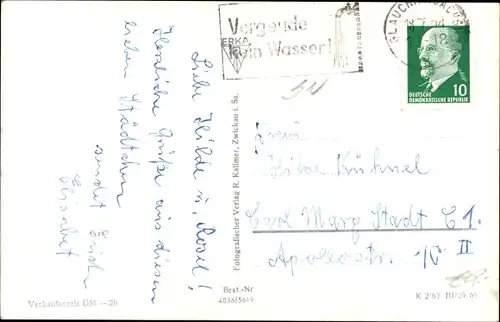 Vergeude
kein Wasser!
ERKA
GLAUCHAU
18
10
DEUTSCHE
DEMOKRATISCHE REPUBLIK
Liebe Hilde u. Rosel!
Herzliche Grüße aus diesem
lieben Städtchen
sendet Euch
Elisabet
Frau
Hilde Kühnel
Carl Marx Stadt C 1.
Apollostr. IV II
Fotografischer Verlag R. Kallmer, Zwickau i. Sa.
Best.-Nr
403615619
Verkaufspreis DM —.20
K 2/63 III/29/65